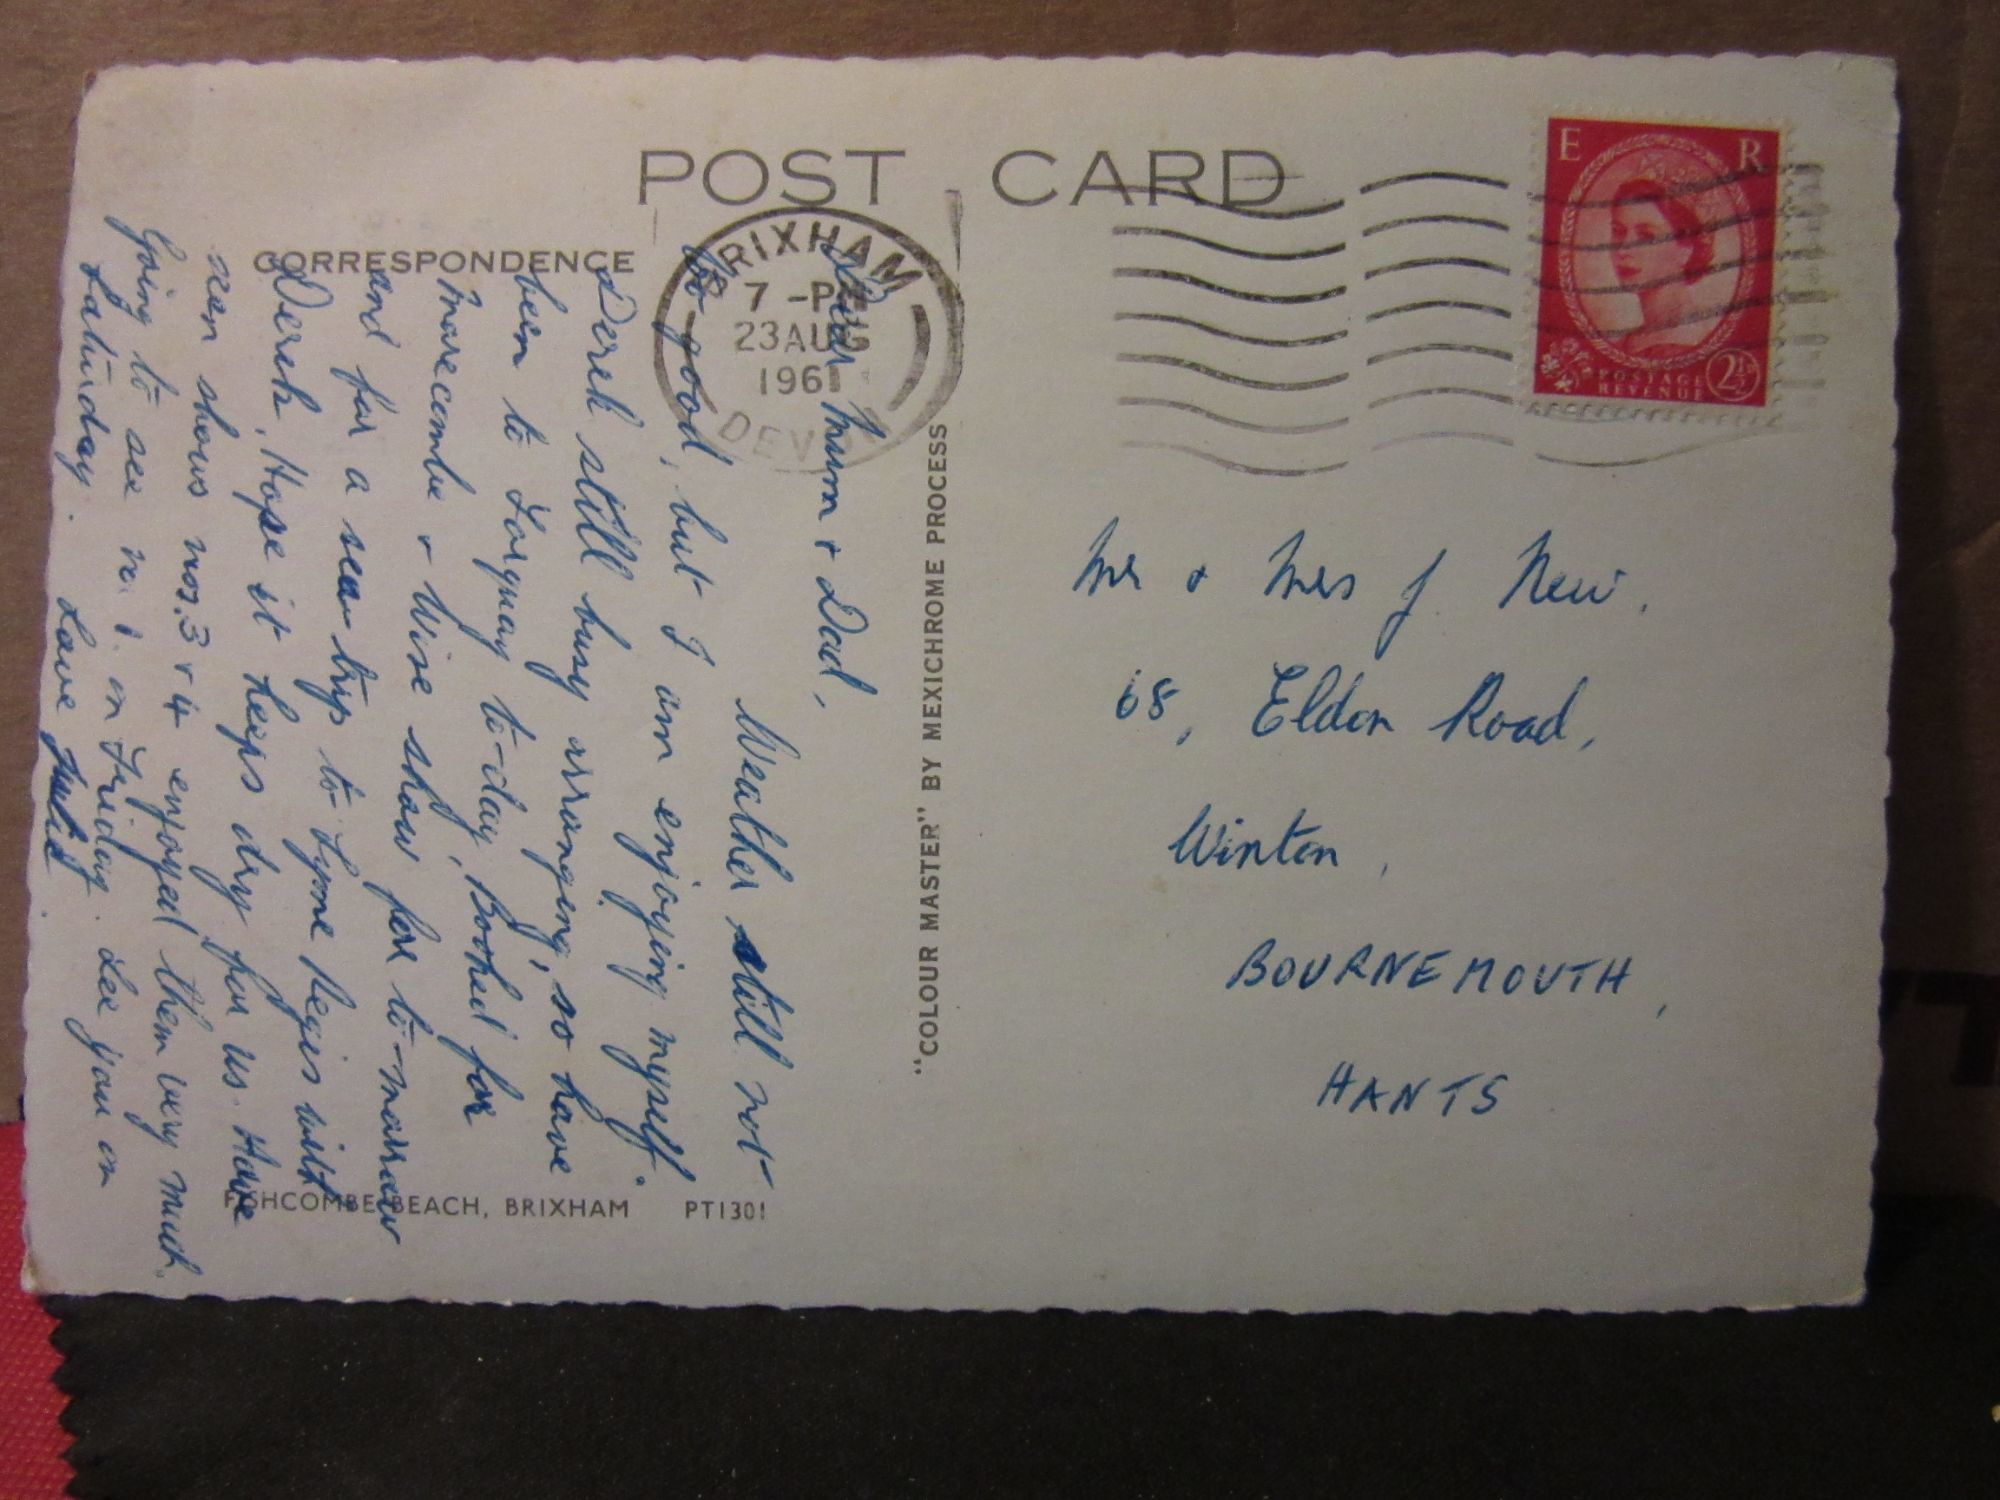 POST CARD
CORRESPONDENCE
BRIXHAM
7 - PM
23 AUG
1961
DEVON
E R
POSTAGE
REVENUE
2½
Dear Mum & Dad,
Weather still not
so good, but I am enjoying myself.
Derek still busy arranging, so have
been to Torquay to-day, Booked for
Morecombe & Wise show for to-morrow
and for a sea trip to Lyme Regis with
Derek, Hope it keeps dry for us. Have
seen shows nos. 3 & 4 enjoyed them very much.
Going to see no 1. on Friday. See you on
Saturday. Love Julie.
"COLOUR MASTER" BY MEXICHROME PROCESS
Mr & Mrs J. New.
68, Eldon Road,
Winton,
BOURNEMOUTH,
HANTS
FISHCOMBE BEACH, BRIXHAM PT1301